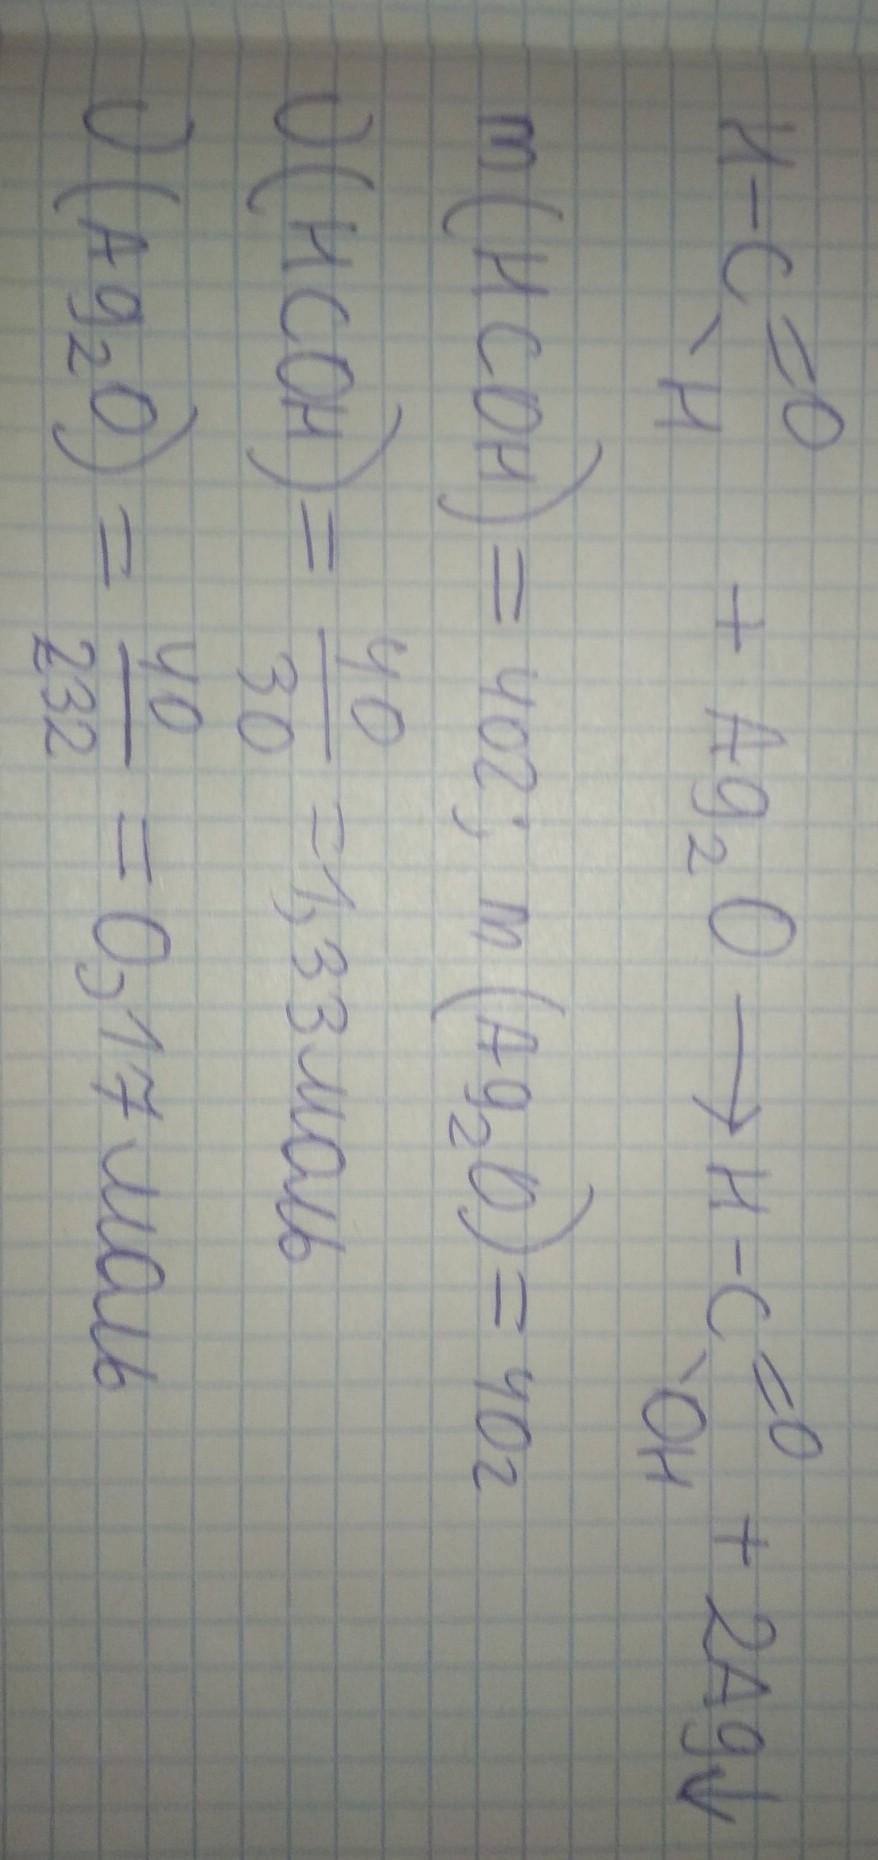 H-C=O H + Ag2O → H-C=O OH + 2Ag↓
m(HCOH) = 40г; m(Ag2O) = 40г
υ(HCOH) = 40/30 = 1,33 моль
υ(Ag2O) = 40/232 = 0,17 моль